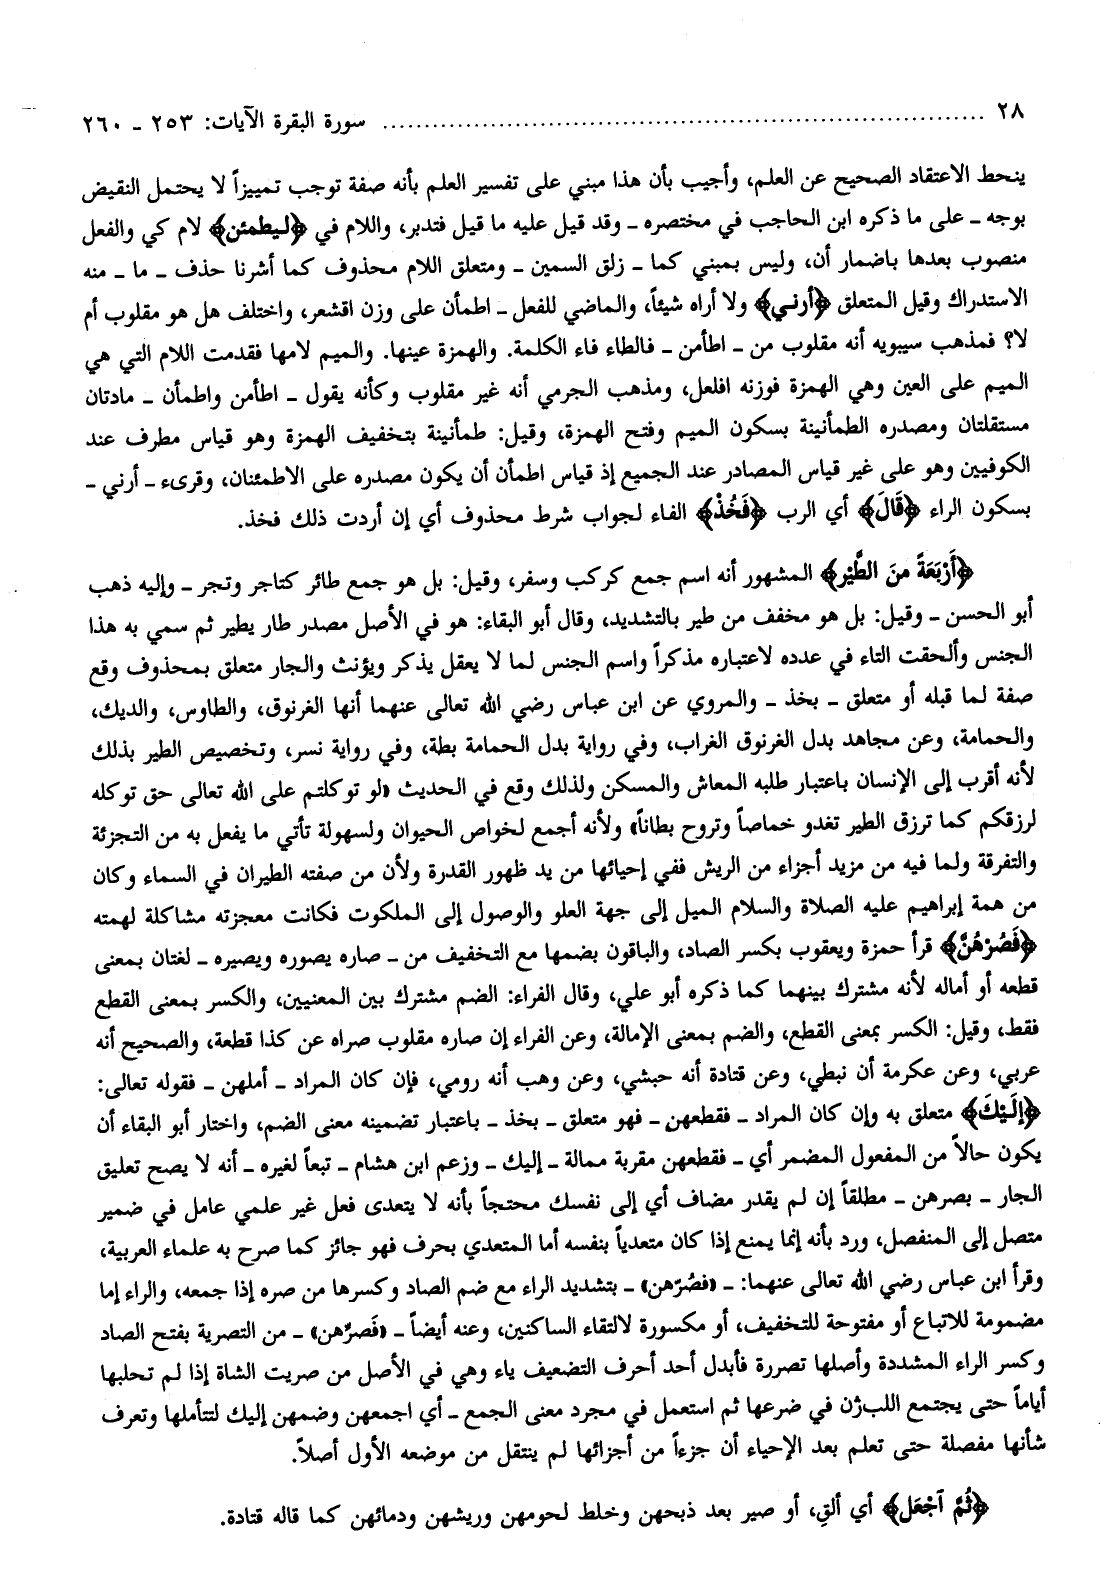 ٢٨ ........................................................................ سورة البقرة الآيات: ٢٥٣ ـ ٢٦٠
ينحط الاعتقاد الصحيح عن العلم، وأجيب بأن هذا مبني على تفسير العلم بأنه صفة توجب تمييزاً لا يحتمل النقيض
بوجه ـ على ما ذكره ابن الحاجب في مختصره ـ وقد قيل عليه ما قيل فتدبر، واللام في ﴿ليطمئن﴾ لام كي والفعل
منصوب بعدها باضمار أن، وليس بمبني كما ـ زلق السمين ـ ومتعلق اللام محذوف كما أشرنا حذف ـ ما ـ منه
الاستدراك وقيل المتعلق ﴿أرني﴾ ولا أراه شيئاً، والماضي للفعل ـ اطمأن على وزن اقشعر، واختلف هل هو مقلوب أم
لا؟ فمذهب سيبويه أنه مقلوب من ـ اطأمن ـ فالطاء فاء الكلمة. والهمزة عينها. والميم لامها فقدمت اللام التي هي
الميم على العين وهي الهمزة فوزنه افلعل، ومذهب الجرمي أنه غير مقلوب وكأنه يقول ـ اطأمن واطمأن ـ مادتان
مستقلتان ومصدره الطمأنينة بسكون الميم وفتح الهمزة، وقيل: طمأنينة بتخفيف الهمزة وهو قياس مطرف عند
الكوفيين وهو على غير قياس المصادر عند الجميع إذ قياس اطمأن أن يكون مصدره على الاطمئنان، وقرىء ـ أرني ـ
بسكون الراء ﴿قَالَ﴾ أي الرب ﴿فَخُذْ﴾ الفاء لجواب شرط محذوف أي إن أردت ذلك فخذ.
﴿أَرْبَعَةً منَ الطَّيْر﴾ المشهور أنه اسم جمع كركب وسفر، وقيل: بل هو جمع طائر كتاجر وتجر ـ وإليه ذهب
أبو الحسن ـ وقيل: بل هو مخفف من طير بالتشديد، وقال أبو البقاء: هو في الأصل مصدر طار يطير ثم سمي به هذا
الجنس وألحقت التاء في عدده لاعتباره مذكراً واسم الجنس لما لا يعقل يذكر ويؤنث والجار متعلق بمحذوف وقع
صفة لما قبله أو متعلق ـ بخذ ـ والمروي عن ابن عباس رضي الله تعالى عنهما أنها الغرنوق، والطاوس، والديك،
والحمامة، وعن مجاهد بدل الغرنوق الغراب، وفي رواية بدل الحمامة بطة، وفي رواية نسر، وتخصيص الطير بذلك
لأنه أقرب إلى الإنسان باعتبار طلبه المعاش والمسكن ولذلك وقع في الحديث «لو توكلتم على الله تعالى حق توكله
لرزقكم كما ترزق الطير تغدو خماصاً وتروح بطاناً» ولأنه أجمع لخواص الحيوان ولسهولة تأتي ما يفعل به من التجزئة
والتفرقة ولما فيه من مزيد أجزاء من الريش ففي إحيائها من يد ظهور القدرة ولأن من صفته الطيران في السماء وكان
من همة إبراهيم عليه الصلاة والسلام الميل إلى جهة العلو والوصول إلى الملكوت فكانت معجزته مشاكلة لهمته
﴿فَصُرْهُنَّ﴾ قرأ حمزة ويعقوب بكسر الصاد، والباقون بضمها مع التخفيف من ـ صاره يصوره ويصيره ـ لغتان بمعنى
قطعه أو أماله لأنه مشترك بينهما كما ذكره أبو علي، وقال الفراء: الضم مشترك بين المعنيين، والكسر بمعنى القطع
فقط، وقيل: الكسر بمعنى القطع، والضم بمعنى الإمالة، وعن الفراء إن صاره مقلوب صراه عن كذا قطعة، والصحيح أنه
عربي، وعن عكرمة أن نبطي، وعن قتادة أنه حبشي، وعن وهب أنه رومي، فإن كان المراد ـ أملهن ـ فقوله تعالى:
﴿إِلَيْكَ﴾ متعلق به وإن كان المراد ـ فقطعهن ـ فهو متعلق ـ بخذ ـ باعتبار تضمينه معنى الضم، واختار أبو البقاء أن
يكون حالاً من المفعول المضمر أي ـ فقطعهن مقربة ممالة ـ إليك ـ وزعم ابن هشام ـ تبعاً لغيره ـ أنه لا يصح تعليق
الجار ـ بصرهن ـ مطلقاً إن لم يقدر مضاف أي إلى نفسك محتجاً بأنه لا يتعدى فعل غير علمي عامل في ضمير
متصل إلى المنفصل، ورد بأنه إنما يمنع إذا كان متعدياً بنفسه أما المتعدي بحرف فهو جائز كما صرح به علماء العربية،
وقرأ ابن عباس رضي الله تعالى عنهما: ـ «فصُرّهن» ـ بتشديد الراء مع ضم الصاد وكسرها من صره إذا جمعه، والراء إما
مضمومة للاتباع أو مفتوحة للتخفيف، أو مكسورة لالتقاء الساكنين، وعنه أيضاً ـ «فَصرِّهن» ـ من التصرية بفتح الصاد
وكسر الراء المشددة وأصلها تصررة فأبدل أحد أحرف التضعيف ياء وهي في الأصل من صريت الشاة إذا لم تحلبها
أياماً حتى يجتمع اللبژن في ضرعها ثم استعمل في مجرد معنى الجمع ـ أي اجمعهن وضمهن إليك لتتأملها وتعرف
شأنها مفصلة حتى تعلم بعد الإحياء أن جزءاً من أجزائها لم ينتقل من موضعه الأول أصلاً.
﴿ثُمَّ آجْعَل﴾ أي ألقِ، أو صير بعد ذبحهن وخلط لحومهن وريشهن ودمائهن كما قاله قتادة.